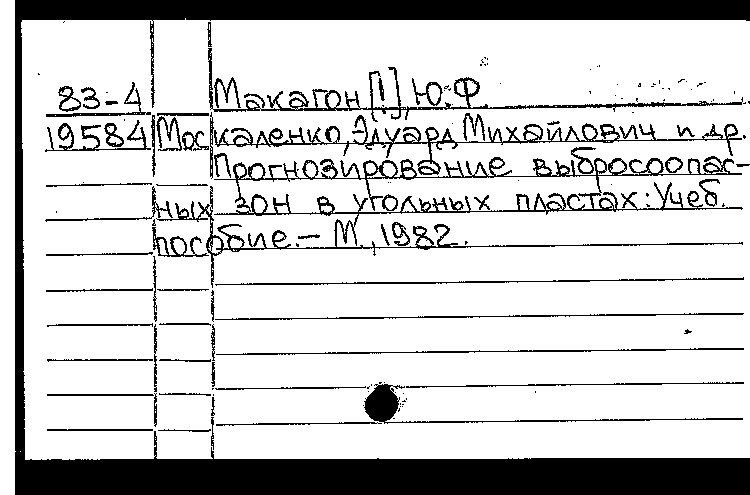 83-4 Макагон [!], Ю.Ф.
19584 Москаленко, Эдуард Михайлович и др.
Прогнозирование выбросоопас-
ных зон в угольных пластах: Учеб.
пособие. – М., 1982.